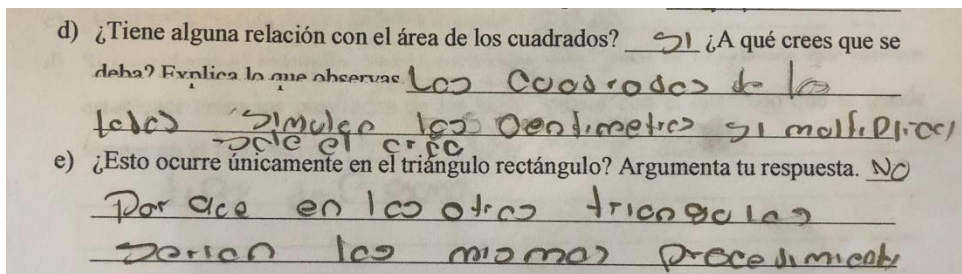 d) ¿Tiene alguna relación con el área de los cuadrados? SI ¿A qué crees que se
deba? Explica lo que observas Los Cuadrados de los
lados simulan los Centimetros si multipli
sale el
e) ¿Esto ocurre únicamente en el triángulo rectángulo? Argumenta tu respuesta. NO
Por en los otros triangulos
serian los mismos procedimient